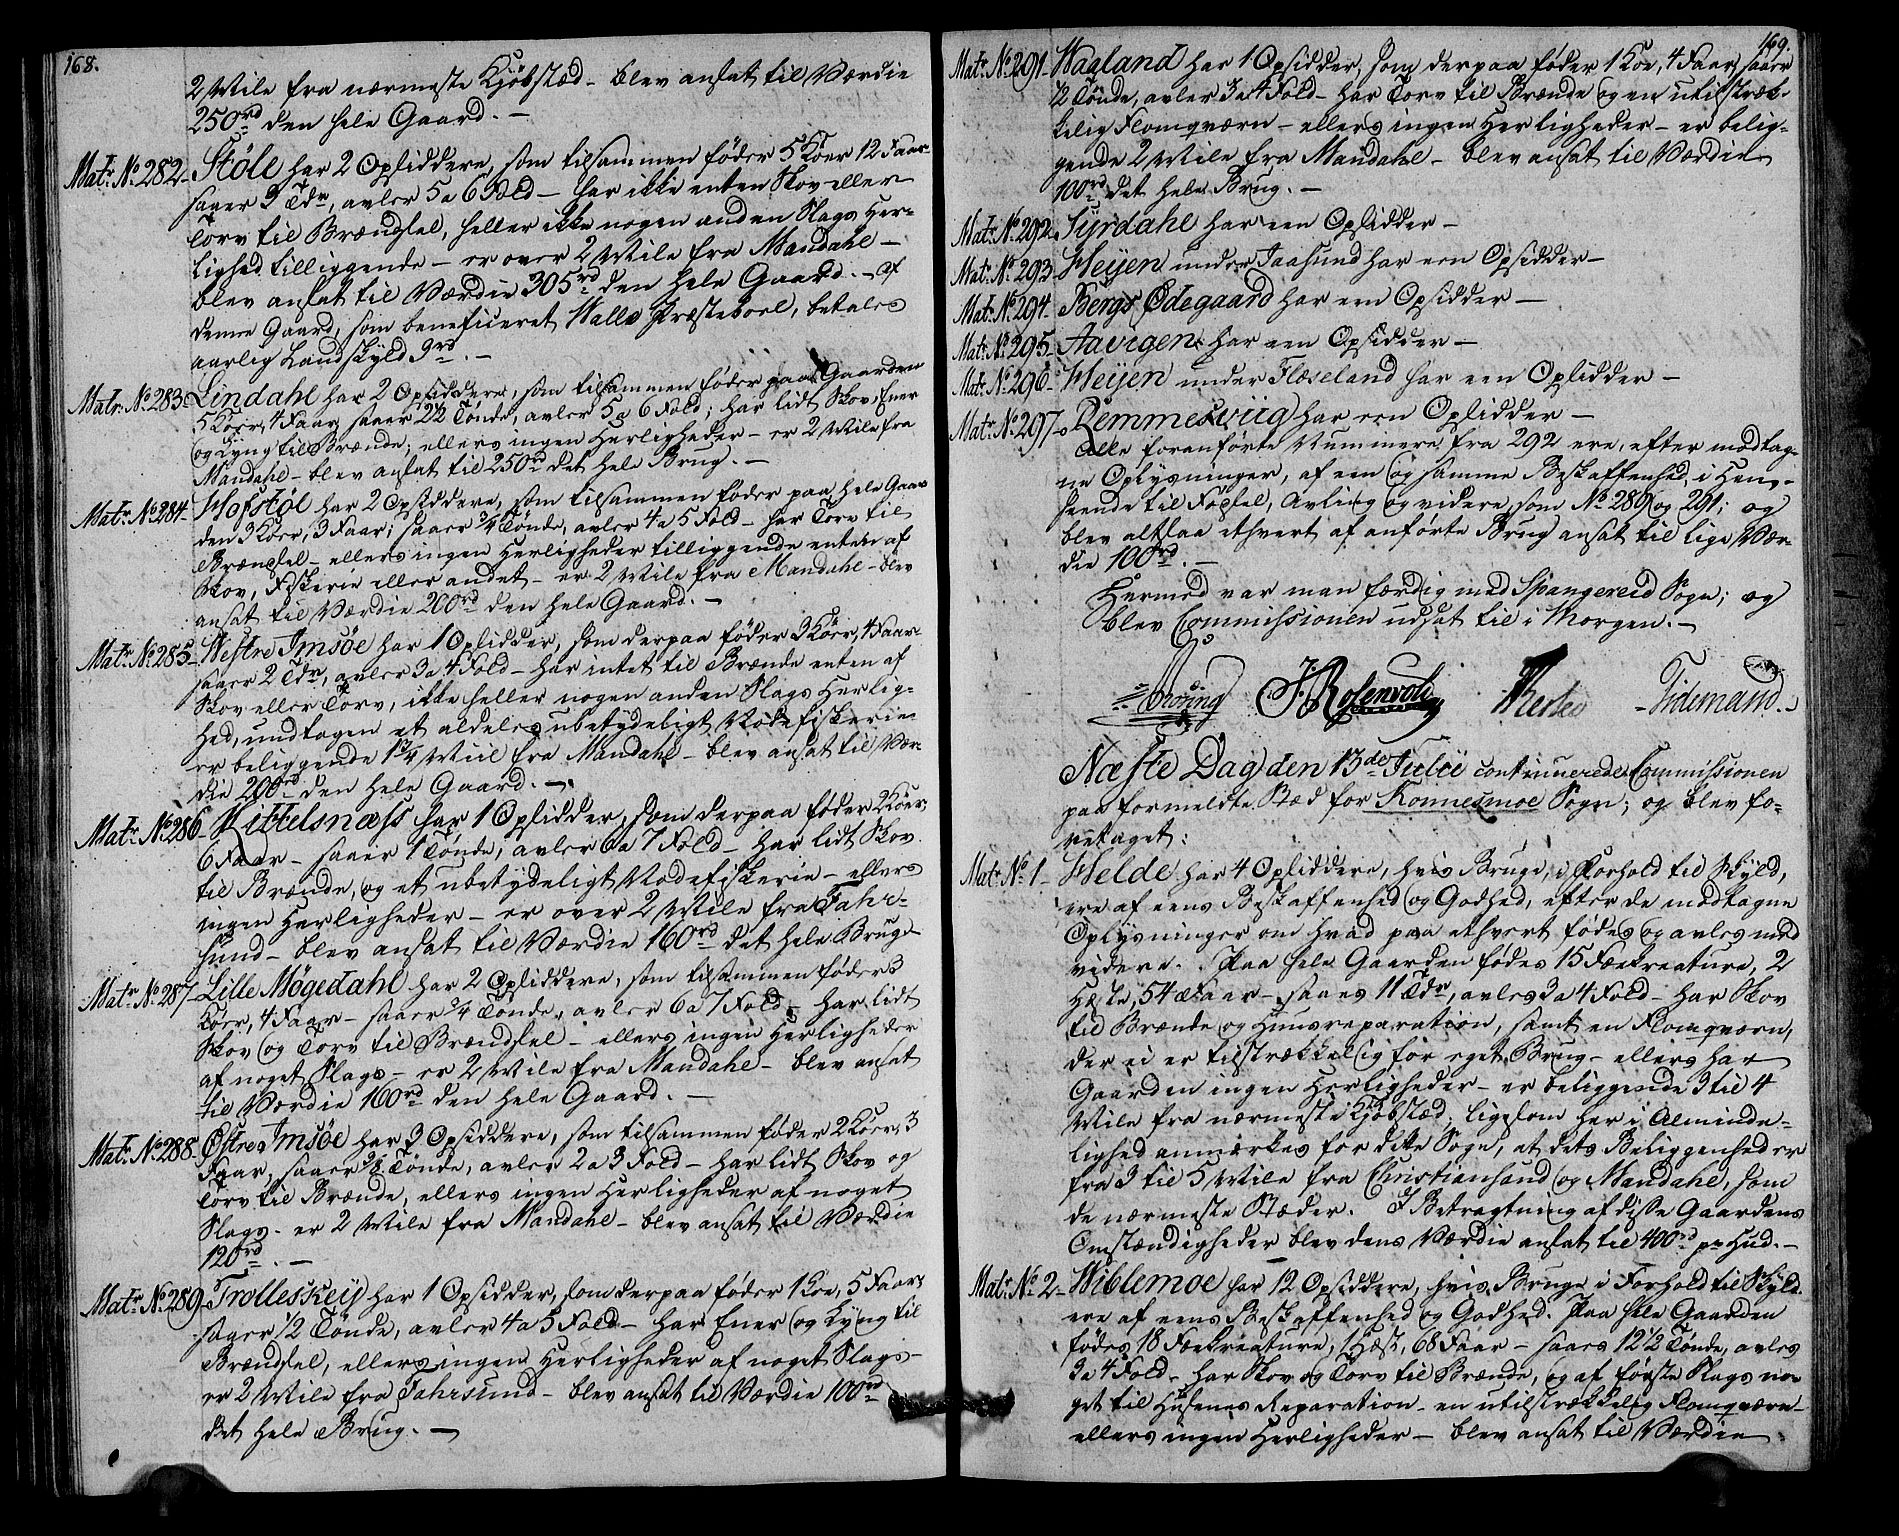 168.
2 Mile fra nærmeste Kjøbstæd – blev ansat til Værdie
250rd den hele Gaard. –
Matr. No. 282 – Støle har 2 Opsiddere, som tilsammen føder 5 Köer 12 Faar –
saaer 3 Tdr, avler 5 a 6 Fold – har ikke enten Skov eller
Torv til Brændsel, heller ikke nogen anden Slags Her-
lighed tilliggende – er over 2 Mile fra Mandahl –
blev ansat til Værdie 305rd den hele Gaard. – af
denne Gaard, som beneficeret Halls Præsteboel, betales
aarlig Landskyld 9rd. –
Matr. No. 283 – Lindahl har 2 Opsiddere, som tilsammen føder paa Gaarden
5 Köer, 4 Faar, saaer 2 1/2 Tönde, avler 5 a 6 Fold; har lidt Skov, Ener
og Lyng til Brænde; ellers ingen Herligheder – er 2 Mile fra
Mandahl – blev ansat til 250rd det hele Brug. –
Matr. No. 284 – Hofstøl har 2 Opsiddere, som tilsammen føder paa hele Gaar
den 3 Köer, 3 Faar; saaer 3/4 Tönde, avler 4 a 5 Fold – har Torv til
Brændsel – ellers ingen Herligheder tilliggende enten af
Skov, Fiskerie eller andet – er 2 Mile fra Mandahl – blev
ansat til Værdie 200rd den hele Gaard. –
Matr. No. 285 – Westre Imsøe har 1 Opsidder, som derpaa føder 3 Köer, 4 Faar –
saaer 2 Tdr, avler 3 a 4 Fold – har intet til Brænde enten af
Skov eller Torv, ikke heller nogen anden Slags Herlig-
hed, undtagen et aldeles ubetydeligt Nodefiskerie –
er beliggende 1 3/4 Miil fra Mandahl – blev ansat til Vær-
die 200rd den hele Gaard. –
Matr. No. 286 – Kittelsnæss har 1 Opsidder, som derpaa føder 2 Köer,
6 Faar – saaer 1 Tönde, avler 6 a 7 Fold – har lidt Skov
til Brænde, og et ubetydeligt Nodefiskerie – ellers
ingen Herligheder – er over 2 Mile fra Fahr-
sund – blev ansat til Værdie 160rd det hele Brug –
Matr. No. 287 – Lille Møgedahl har 2 Opsiddere, som tilsammen føder 3
Köer, 4 Faar – saaer 3/4 Tönde, avler 6 a 7 Fold – har lidt
Skov og Torv til Brændsel – ellers ingen Herligheder
af noget Slags – er 2 Mile fra Mandahl – blev ansat
til Værdie 160rd den hele Gaard. –
Matr. No. 288 – Østre Imsøe har 3 Opsiddere, som tilsammen føder 2 Köer, 3
Faar, saaer 5/8 Tönde, avler 2 a 3 Fold – har lidt Skov og
Torv til Brænde, ellers ingen Herligheder af noget
Slags – er 2 Mile fra Mandahl – blev ansat til Værdie
120rd. –
Matr. No. 289 – Trolleskeij har 1 Opsidder, som derpaa føder 1 Koe, 5 Faar,
saaer 1/2 Tönde, avler 4 a 5 Fold – har Ener og Lyng til
Brændsel, ellers ingen Herligheder af noget Slags –
er 2 Mile fra Fahrsund – blev ansat til Værdie 100rd
det hele Brug. –
169.
Matr. No. 291 – Wagland har 1 Opsidder, som derpaa føder 1 Koe, 4 Faar, saaer
1/2 Tönde, avler 3 a 4 Fold – har Torv til Brænde og en utilstræk-
kelig Flomqværn – ellers ingen Herligheder – er belig-
gende 2 Mile fra Mandahl – blev ansat til Værdie
100rd det hele Brug. –
Matr. No. 292 – Syrdahl har een Opsidder –
Matr. No. 293 – Heijen under Jaasund har een Opsidder –
Matr. No. 294 – Bergs Ødegaard har een Opsidder –
Matr. No. 295 – Aavigen har een Opsidder –
Matr. No. 296 – Heijen under Flæseland har een Opsidder –
Matr. No. 297 – Remmesviig har een Opsidder –
Alle foranførte Nummere fra 292 ere, efter modtag-
ne Oplysninger, af een og samme Beskaffenhed, i Hen-
seende til Fødsel, Avling og videre, som No. 289 og 291; og
blev altsaa ethvert af anførte Brug ansat til lige Vær-
die 100rd. –
Hermed var man færdig med Spangereid Sogn; og
blev Commissionen udsat til i Morgen. –
J. Rosenvold Tidemand. –
Næste Dag den 13de Julii continuerede Commissionen
paa formeldte Stæd for Konnesmoe Sogn; og blev fo-
retaget:
Matr. No. 1 – Helde har 4 Opsiddere, hvis Bruge, i Forhold til Skyld,
ere af eens Beskaffenhed og Godhed, efter de modtagne
Oplysninger om hvad paa ethvert fødes og avles med
videre. Paa hele Gaarden fødes 15 Fækreature, 2
Heste, 54 Faar – saaes 11 Tdr, avles 3 a 4 Fold – har Skov
til Brænde og Huusreparation, samt en Flomqværn,
der ei er tilstrækkelig for eget Brug – ellers har
Gaarden ingen Herligheder – er beliggende 3 til 4
Mile fra nærmeste Kjøbstæd; ligesom her i Alminde-
lighed anmærkes for dette Sogn, at dets Beliggenhed er
fra 3 til 5 Mile fra Christiansand og Mandahl, som
de nærmeste Stæder. I Betragtning af disse Gaardens
Omstændigheder blev dens Værdie ansat til 400rd pr Hud. –
Matr. No. 2 – Wiblemoe har 12 Opsiddere, hvis Bruge i Forhold til Skyld
ere af eens Beskaffenhed og Godhed. Paa hele Gaarden
fødes 18 Fækreature, 1 Hest, 68 Faar – saaes 12 1/2 Tönde, avles
3 a 4 Fold – har Skov og Torv til Brænde, og af første Slags no-
get til Husenes Reparation – en utilstrækkelig Flomqværn –
ellers ingen Herligheder – blev ansat til Værdie